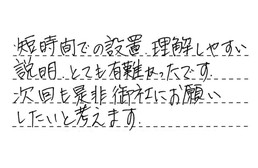 短時間での設置、理解しやすい
説明、とても有難かったです。
次回も是非御社にお願い
したいと考えます。